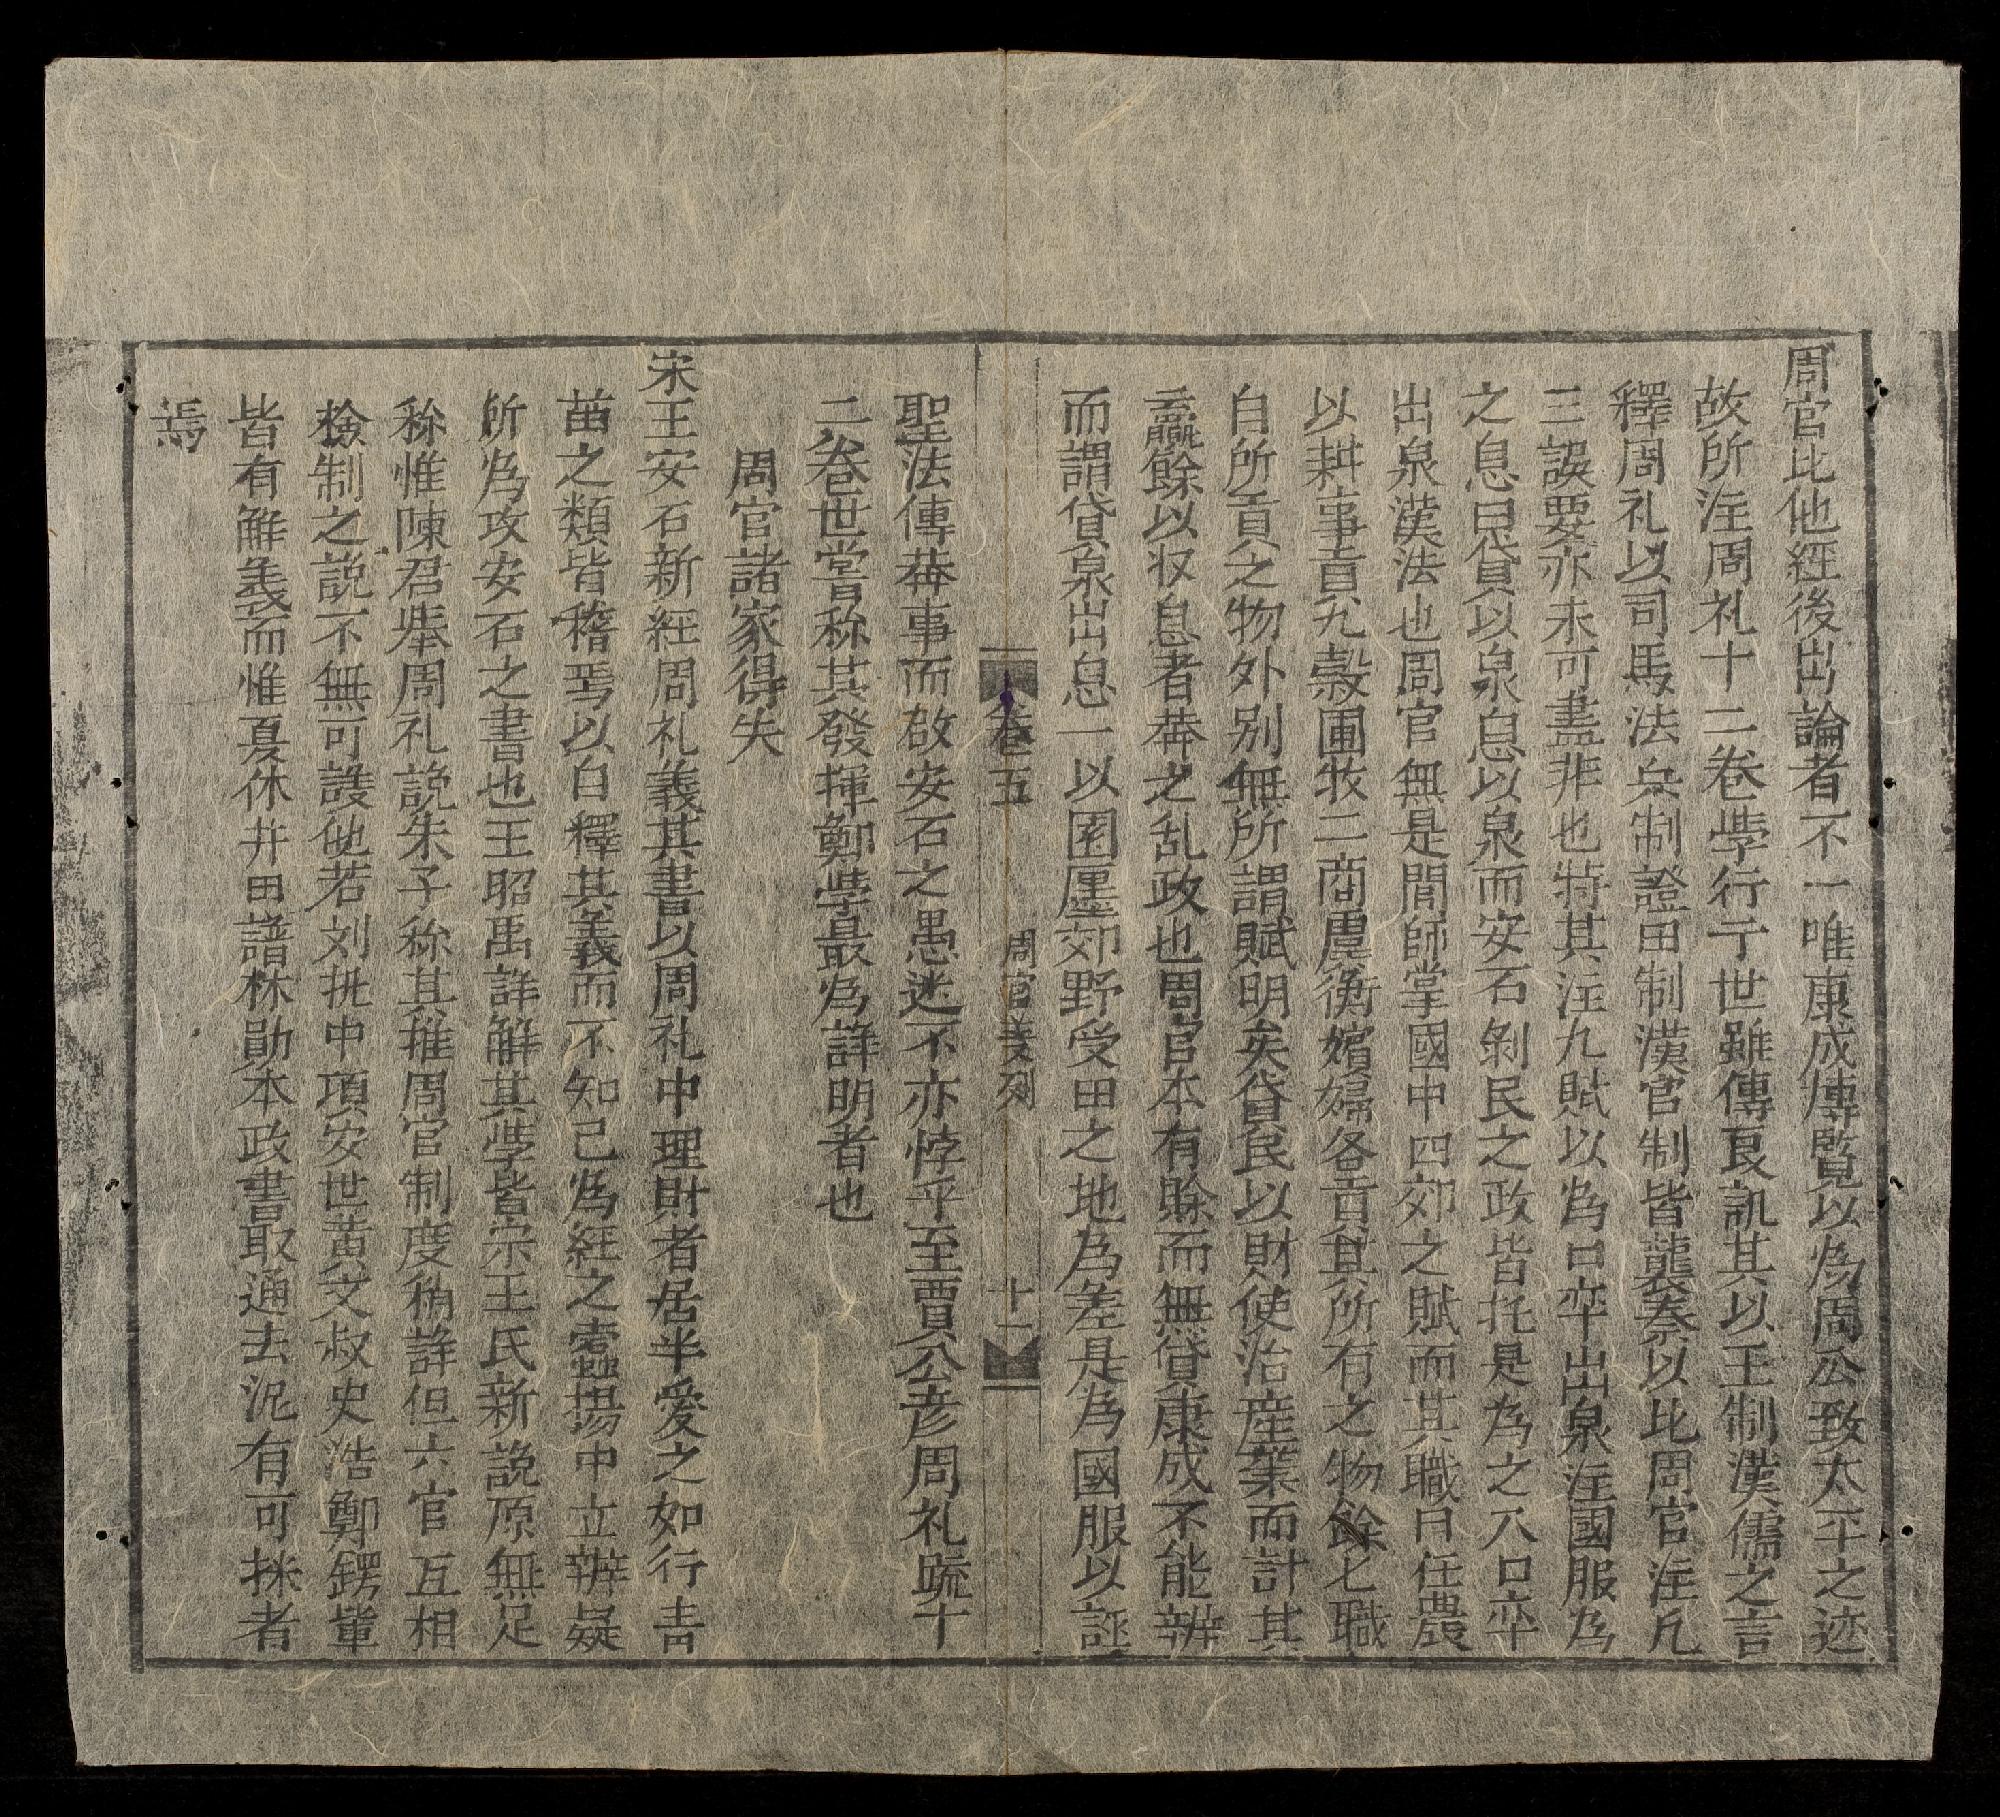 周官比他經後出論者不一唯康成博覧以為周公致太平之迹
故所注周礼十二卷斈行于世雖傳良訊其以王制漢儒之言
釋周礼以司馬法兵制證田制漢官制皆襲秦以比周官注凡
三誤要亦未可盡非也特其注九賦以為口卒出泉注國服為
之息曰貸以泉息以泉而安石剝民之政皆托是為之不口卒
出泉漢法也周官無是閭師掌國中四郊之賦而其職曰任農
以耕事貢九榖圃牧二商虞衡嬪婦各貢其所有之物餘七職
自所貢之物外别無所謂賦明矣貸民以財使治産業而計其
贏餘以収息者莾之乱政也周官本有賒而無貸康成不能辨
而謂貸泉出息一以園廛郊野受田之地為差是為國服以誣
卷五 周官義列 十一
聖法傳莾事而啟安石之愚迷不亦悖乎至賈公彦周礼䟽十
二卷世嘗称其發揮鄭斈最為詳明者也
周官諸家得失
宋王安石新経周礼義其書以周礼中理財者居半愛之如行青
苗之類皆稽焉以白釋其義而不知己為経之蠹揚中立辨疑
所為攻安石之書也王昭禹詳觧其斈皆宗王氏新説原無足
称惟陳君举周礼説朱子称其推周官制度稍詳但六官互相
檢制之説不無可議他若刘执中項安世黄文叔史浩鄭鍔軰
皆有觧義而惟夏休井田譜林勛本政書取通去泥有可採者
焉